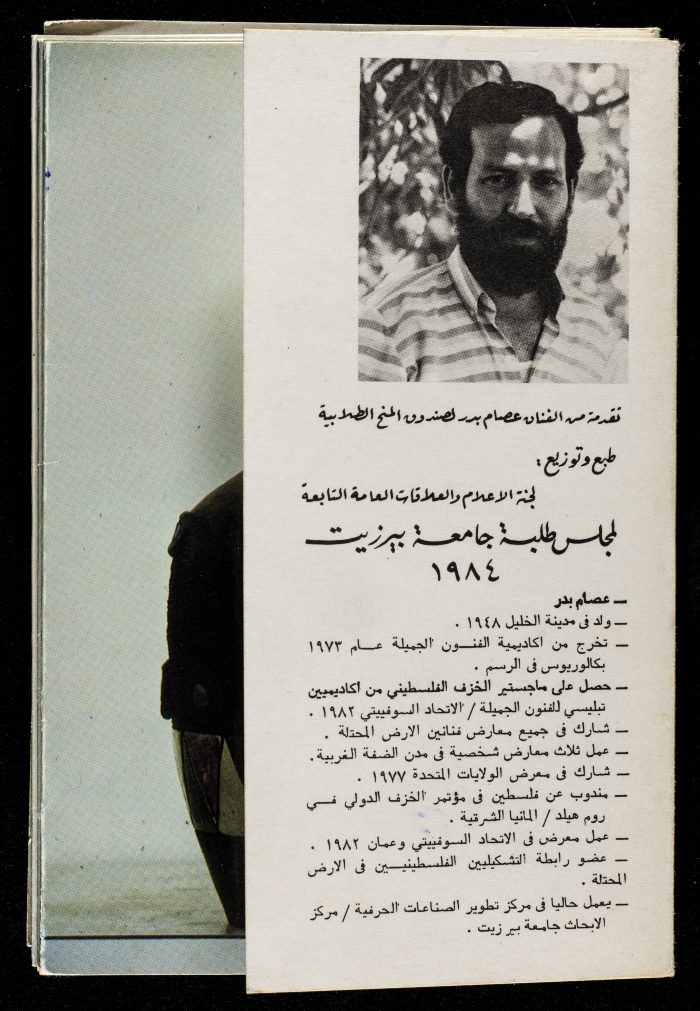 تقدمة من الفنان عصام بدر لصندوق المنح الطلابية
طبع وتوزيع:
لجنة الاعلام والعلاقات العامة التابعة
لمجلس طلبة جامعة بيرزيت
١٩٨٤
ــ عصام بدر
ــ ولد فى مدينة الخليل ١٩٤٨ .
ــ تخرج من اكاديمية الفنــون الجميلة عــام ١٩٧٣
بكالوريوس فى الرسم .
ــ حصل على ماجستير الخزف الفلسطيني من اكاديميين
تبليسي للفنون الجميلة / الاتحاد السوفييتي ١٩٨٢ .
ــ شارك فى جميع معارض فنانين الارض المحتلة .
ــ عمل ثلاث معارض شخصية فى مدن الضفة الغربية .
ــ شارك فى معرض الولايات المتحدة ١٩٧٧ .
ــ مندوب عن فلسطين فى مؤتمر الخزف الدولي فــي
روم هيلد / المانيا الشرقية .
ــ عمل معرض فى الاتحاد السوفييتي وعمان ١٩٨٢ .
ــ عضو رابطة التشكيليين الفلسطينيــين فى الارض
المحتلة .
ــ يعمل حاليا فى مركز تطوير الصناعات الحرفية / مركز
الابحاث جامعة بير زيت .